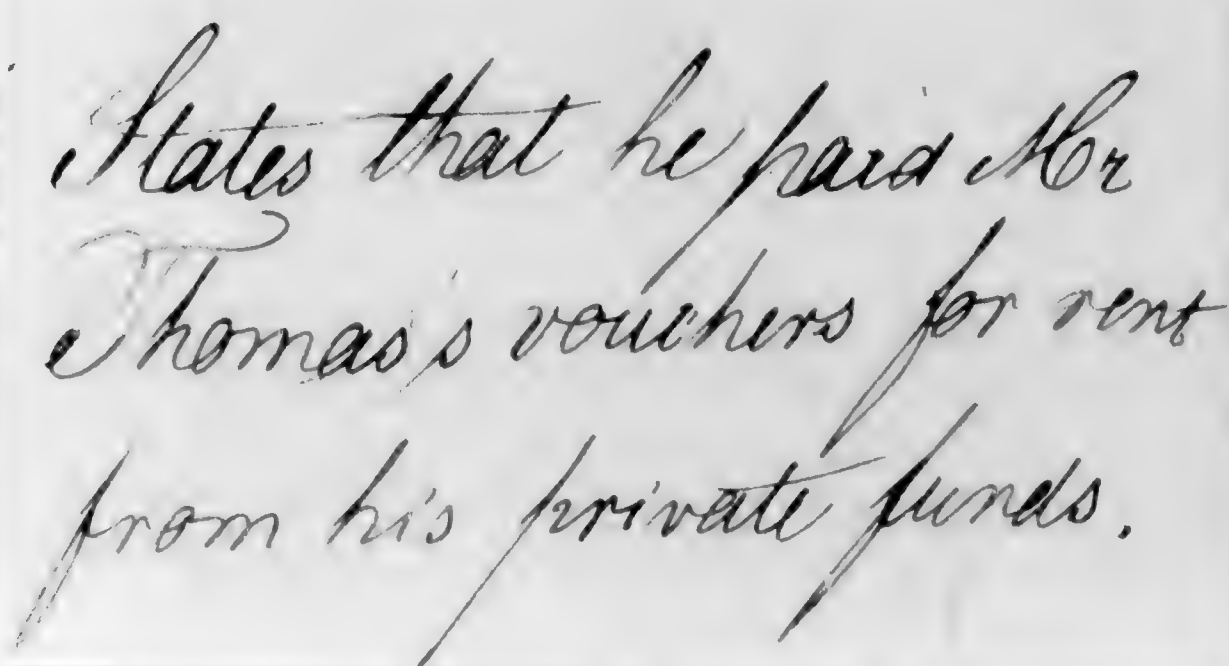 States that he paid Mr
Thomas's vouchers for rent
from his private funds.